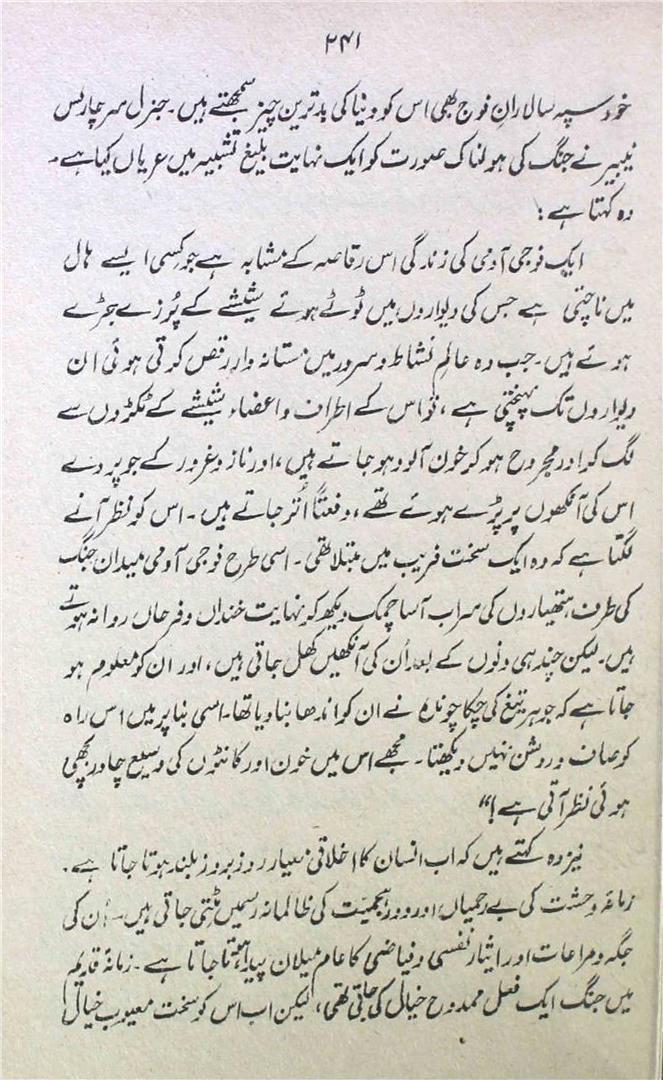 ۲۴۱
خود سپہ سالارانِ فوج بھی اس کو دنیا کی بدترین چیز سمجھتے ہیں۔ جنرل سر چارلس
نیپیر نے جنگ کی ہولناک صورت کو ایک نہایت بلیغ تشبیہ میں عریاں کیا ہے۔
وہ کہتا ہے:
ایک فوجی آدمی کی زندگی اس رقاصہ کے مشابہ ہے جو کسی ایسے ہال
میں ناچتی ہے جس کی دیواروں میں ٹوٹے ہوئے شیشے کے پُرزے جڑے
ہوئے ہیں۔ جب وہ عالمِ نشاط و سرور میں مستانہ وار رقص کرتی ہوئی ان
دیواروں تک پہنچتی ہے، تو اس کے اطراف و اعضاء شیشے کے ٹکڑوں سے
لگ کر اور مجروح ہو کر خون آلود ہو جاتے ہیں، اور ناز و غرور کے جو پردے
اس کی آنکھوں پر پڑے ہوئے تھے، دفعتاً اُتر جاتے ہیں۔ اس کو نظر آنے
لگتا ہے کہ وہ ایک سخت فریب میں مبتلا تھی۔ اسی طرح فوجی آدمی میدان جنگ
کی طرف ہتھیاروں کی سراب آسا چمک دیکھ کر نہایت خنداں و فرحاں روانہ ہوتے
ہیں۔ لیکن چند ہی دنوں کے بعد اُن کی آنکھیں کھل جاتی ہیں، اور ان کو معلوم ہو
جاتا ہے کہ جوہر تیغ کی چکا چوندہ نے ان کو اندھا بنا دیا تھا۔ اسی بنا پر میں اس راہ
کو صاف و روشن نہیں دیکھتا۔ مجھے اس میں خون اور کانٹوں کی وسیع چادر بچھی
ہوئی نظر آتی ہے!“
نیز وہ کہتے ہیں کہ اب انسان کا اخلاقی معیار روز بروز بلند ہوتا جاتا ہے۔
زمانۂ وحشت کی بے رحمیاں اور دور بہیمیت کی ظالمانہ رسمیں مٹتی جاتی ہیں۔ اُن کی
جگہ و مراعات اور ایثار نفسی و فیاضی کا عام میلان پیدا ہوتا جاتا ہے۔ زمانۂ قدیم
میں جنگ ایک فعل ممدوح خیال کی جاتی تھی، لیکن اب اس کو سخت معیوب خیال